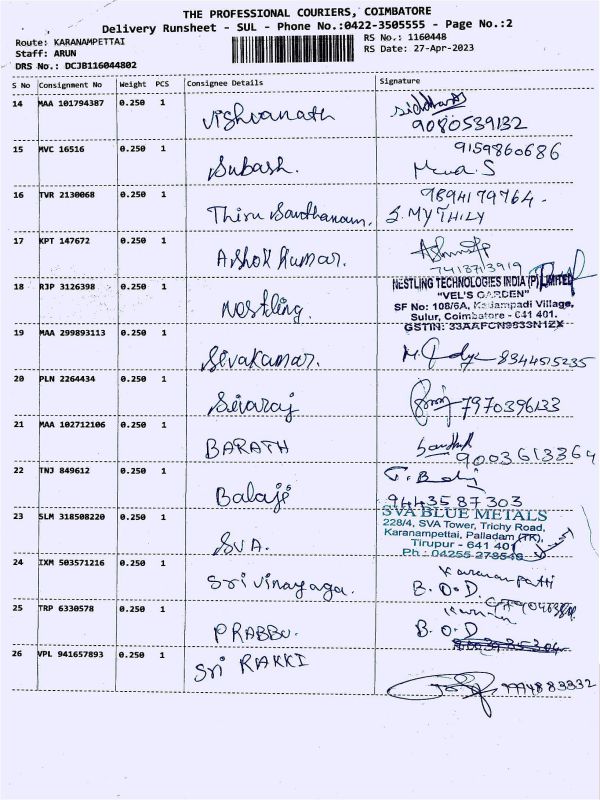 THE PROFESSIONAL COURIERS, COIMBATORE
Delivery Runsheet - SUL - Phone No.:0422-3505555 - Page No.:2
Route: KARANAMPETTAI
RS No.: 1160448
Staff: ARUN
RS Date: 27-Apr-2023
DRS No.: DCJB116044802
S No Consignment No Weight PCS Consignee Details Signature
14 MAA 101794387 0.250 1 Vishvanath
9080539132
15 MVC 16516 0.250 1 Subash.
9159860686
16 TVR 2130068 0.250 1 Thiru Santhanam.
9894179764.
S. MYTHILY
17 KPT 147672 0.250 1 Ashok Kumar.
7418713919
18 RJP 3126398 0.250 1 Nestling.
NESTLING TECHNOLOGIES INDIA (P) LIMITED
"VEL'S GARDEN"
SF No: 108/6A, Kadampadi Village,
Sulur, Coimbatore - 641 401.
GSTIN: 33AAFCN9833N1ZX
19 MAA 299893113 0.250 1 Sivakumar.
8344515235
20 PLN 2264434 0.250 1 Sivaraj
7970396133
21 MAA 102712106 0.250 1 BARATH
9003613364
22 TNJ 849612 0.250 1 Balaji
9443587303
23 SLM 318508220 0.250 1 SVA.
SVA BLUE METALS
228/4, SVA Tower, Trichy Road,
Karanampettai, Palladam (TK),
Tirupur - 641 401
Ph : 04255-278548
24 IXM 503571216 0.250 1 Sri vinayaga.
B.O.D.
25 TRP 6330578 0.250 1 PRABBU.
B.O.D
26 VPL 941657893 0.250 1 Sri RAKKI
9774883332